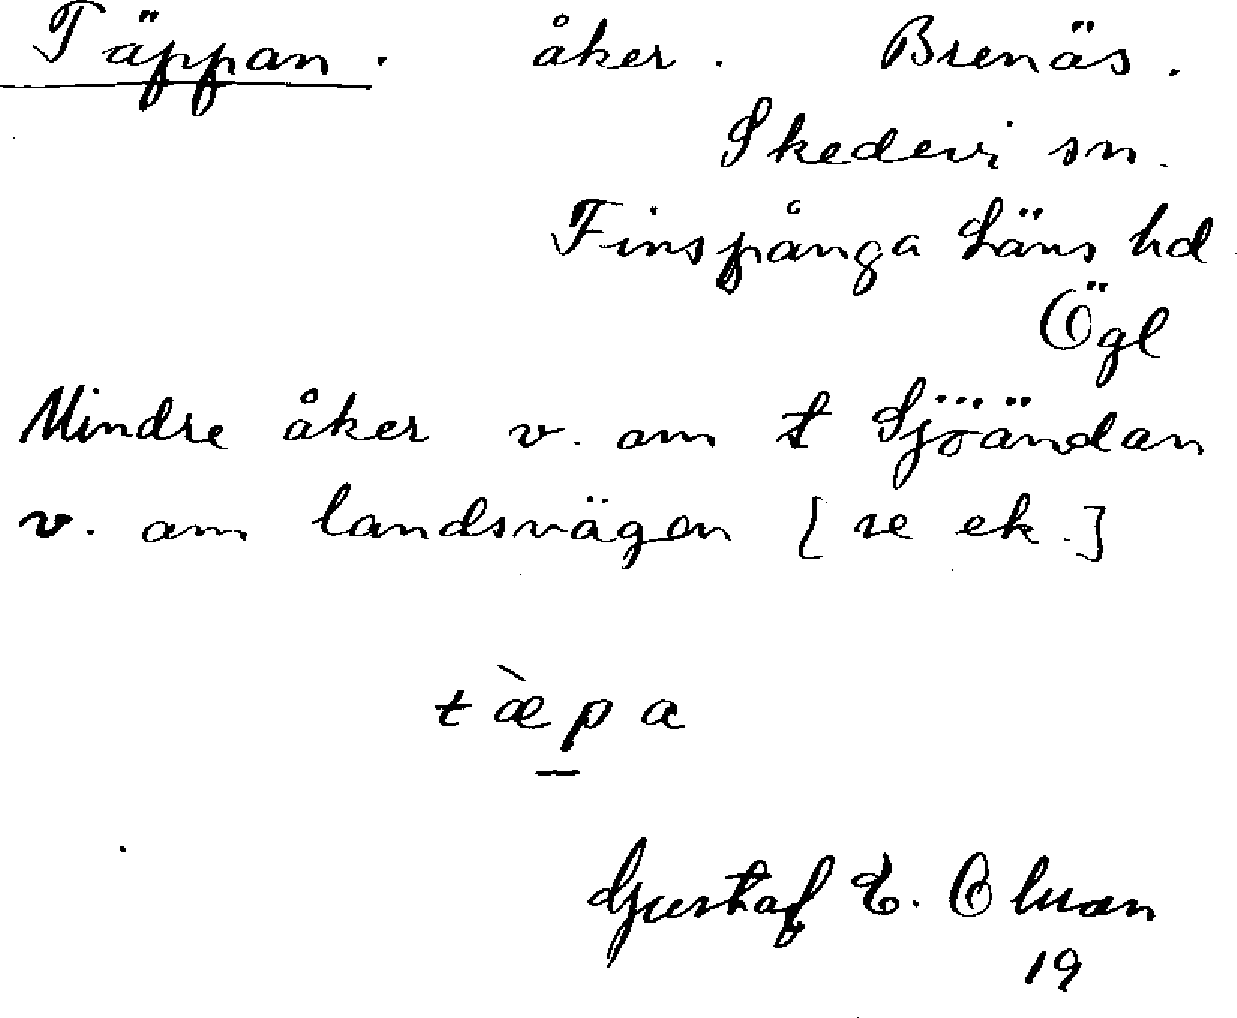 Täppan. åker. Brenäs.
Skedevi sn.
Finspånga Läns hd
Ögl
Mindre åker v. om t Sjöändan
v. om landsvägen [se ek.]
tæ̀pa
Gustaf E.
19